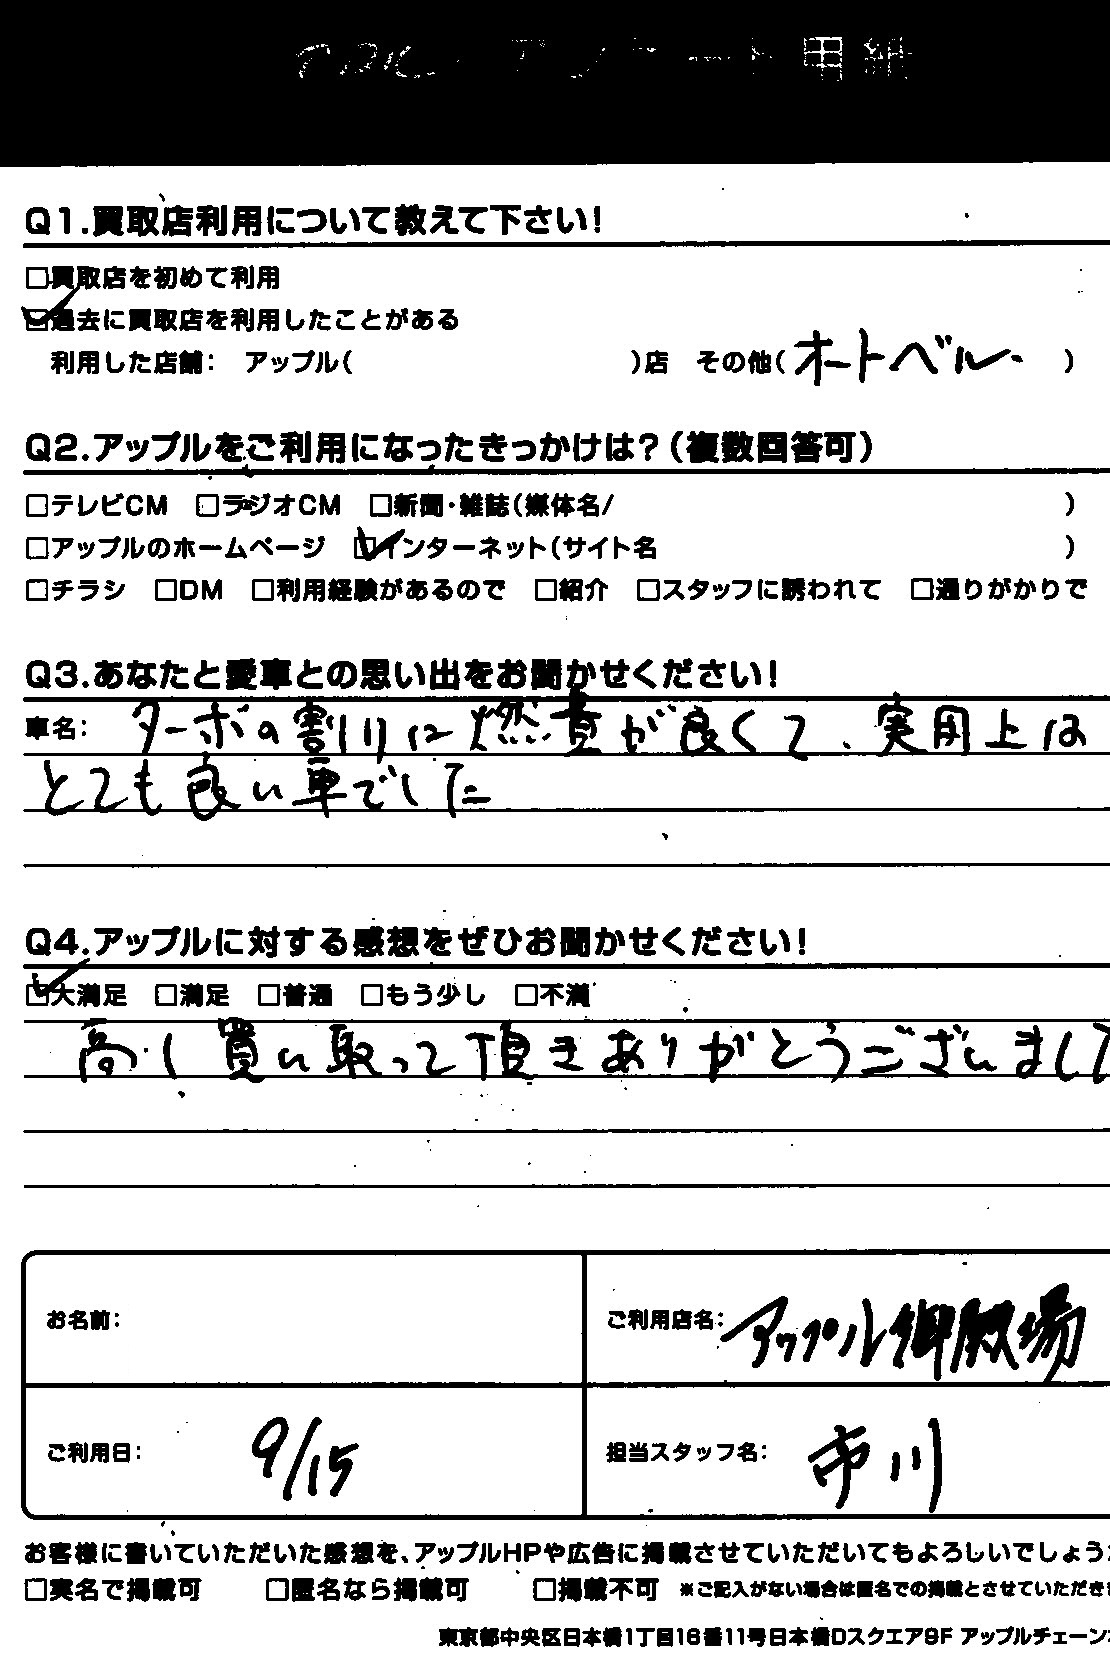 アンケート用紙
Q1.買取店利用について教えて下さい!
□買取店を初めて利用
☑過去に買取店を利用したことがある
利用した店舗: アップル( )店 その他(オートベル )
Q2.アップルをご利用になったきっかけは?(複数回答可)
□テレビCM □ラジオCM □新聞・雑誌(媒体名/ )
□アップルのホームページ ☑インターネット(サイト名 )
□チラシ □DM □利用経験があるので □紹介 □スタッフに誘われて □通りがかりで
Q3.あなたと愛車との思い出をお聞かせください!
車名: ターボの割りに燃費が良くて、実用上は
とても良い車でした
Q4.アップルに対する感想をぜひお聞かせください!
☑大満足 □満足 □普通 □もう少し □不満
高く買い取って頂きありがとうございまして
お名前: ご利用店名: アップル御殿場
ご利用日: 9/15 担当スタッフ名: 市川
お客様に書いていただいた感想を、アップルHPや広告に掲載させていただいてもよろしいでしょう
□実名で掲載可 □匿名なら掲載可 □掲載不可 ※ご記入がない場合は匿名での掲載とさせていただき
東京都中央区日本橋1丁目16番11号日本橋Dスクエア9F アップルチェーン